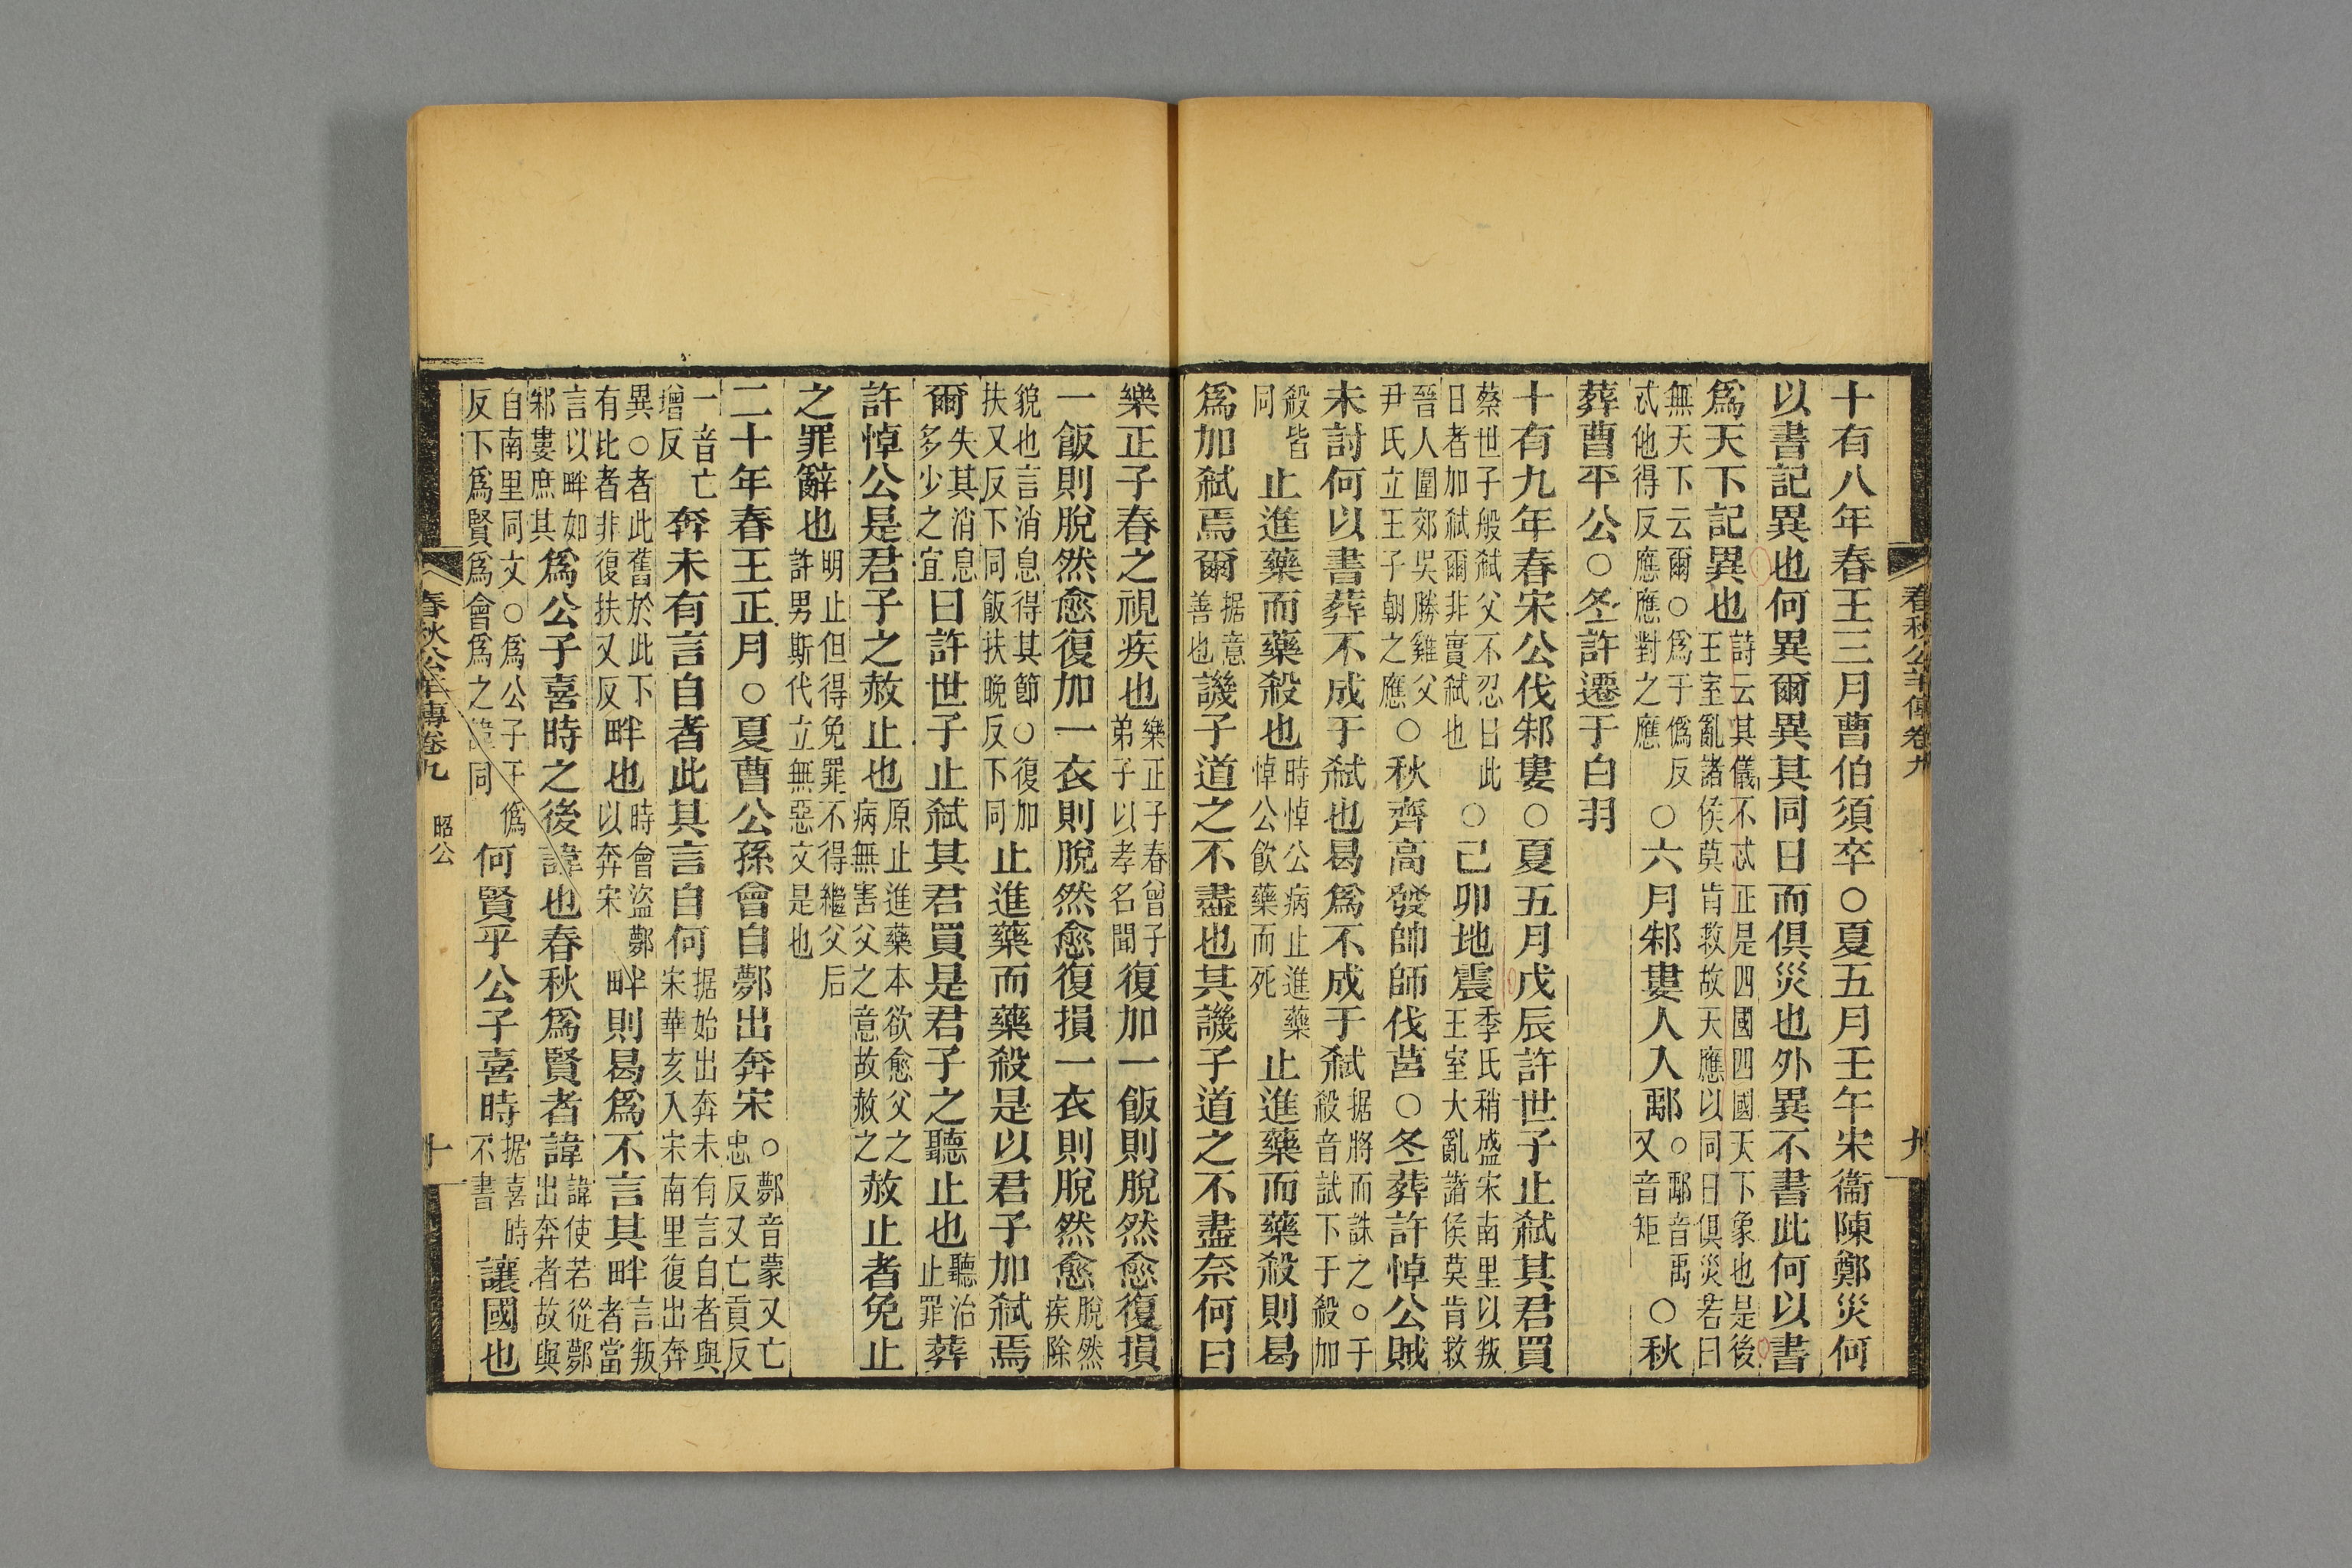 十有八年春王三月曹伯須卒○夏五月壬午宋衞陳鄭災何
以書記異也何異爾異其同日而俱災也外異不書此何以書
爲天下記異也詩云其儀不忒正是四國四國天下象也是後王室亂諸侯莫肯救故天應以同日俱災若曰
無天下云爾○爲于僞反忒他得反應應對之應○六月邾婁人入鄅○鄅音禹又音矩○秋
葬曹平公○冬許遷于白羽
十有九年春宋公伐邾婁○夏五月戊辰許世子止弒其君買
蔡世子般弒父不忍日此日者加弒爾非實弒也○己卯地震季氏稍盛宋南里以叛王室大亂諸侯莫肯救
晉人圍郊吳勝雞父尹氏立王子朝之應○秋齊高發帥師伐莒○冬葬許悼公賊
未討何以書葬不成于弒也曷爲不成于弒据將而誅之○于殺音試下于殺加
殺皆同止進藥而藥殺也時悼公病止進藥悼公飲藥而死止進藥而藥殺則曷
爲加弒焉爾据意善也譏子道之不盡也其譏子道之不盡奈何曰
春秋公羊傳卷九 九
樂正子春之視疾也樂正子春曾子弟子以孝名聞復加一飯則脫然愈復損
一飯則脫然愈復加一衣則脫然愈復損一衣則脫然愈脫然疾除
貌也言消息得其節○復加扶又反下同飯扶晚反下同止進藥而藥殺是以君子加弒焉
爾失其消息多少之宜曰許世子止弒其君買是君子之聽止也聽治止罪葬
許悼公是君子之赦止也原止進藥本欲愈父之病無害父之意故赦之赦止者免止
之罪辭也明止但得免罪不得繼父后許男斯代立無惡文是也
二十年春王正月○夏曹公孫會自鄸出奔宋○鄸音蒙又亡忠反又亡貢反
一音亡增反奔未有言自者此其言自何据始出奔未有言自者與宋華亥入宋南里復出奔
異○者此舊於此下有比者非復扶又反畔也時會盜鄸以奔宋畔則曷爲不言其畔言叛者當
言以畔如邾婁庶其爲公子喜時之後諱也春秋爲賢者諱諱使若從鄸出奔者故與
自南里同文○爲公子于僞反下爲賢爲會爲之諱同何賢乎公子喜時据喜時不書讓國也
春秋公羊傳卷九 昭公 十